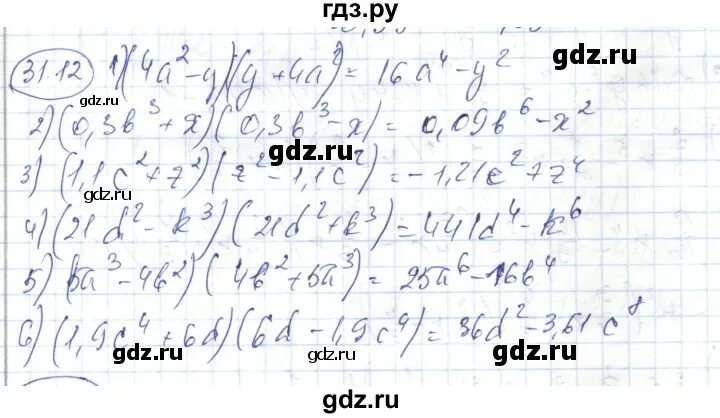 гдз.ру
31.12 1) (4a² - y)(y + 4a²) = 16a⁴ - y²
gdz.ru
gdz.ru
2) (0,3b³ + x)(0,3b³ - x) = 0,09b⁶ - x²
gdz.ru
3) (1,1c² + z²)(z² - 1,1c²) = -1,21c² + z⁴
gdz.ru
gdz.ru
4) (21d² - k³)(21d² + k³) = 441d⁴ - k⁶
gdz.ru
5) (5a³ - 4b²)(4b² + 5a³) = 25a⁶ - 16b⁴
gdz.ru
gdz.ru
6) (1,9c⁴ + 6d)(6d - 1,9c⁴) = 36d² - 3,61c⁸
gdz.ru
gdz.ru